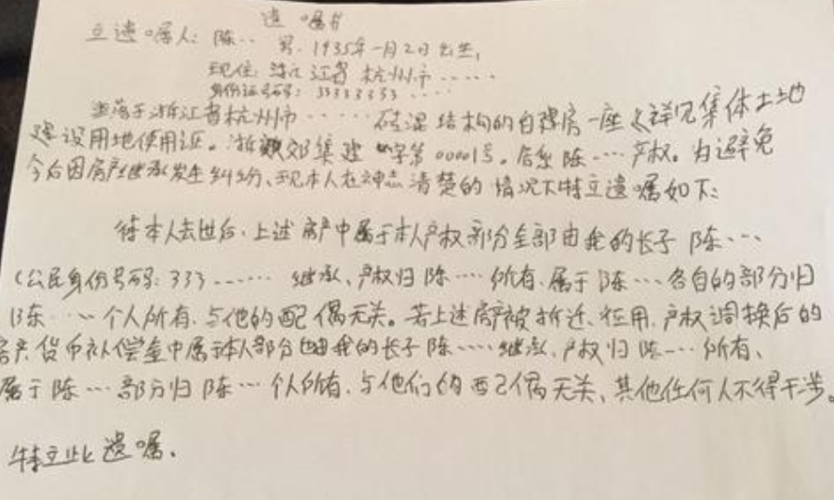 遗嘱书
立遗嘱人: 陈.. 男. 1935年一月2日出生,
现住: 浙江省杭州市......
身份证号码: 33333333 ....
坐落于浙江省杭州市......砖混结构的自建房一座(详见集体土地
建设用地使用证。浙 郊集建 字第00001号。 陈....产权。为避免
今后因房产继承发生纠纷、现本人在神志清楚的情况下特立遗嘱如下:
待本人去世后、上述房产中属于本人产权部分全部由我的长子陈....
(公民身份号码: 333....... 继承、产权归陈....所有、属于陈...各自的部分归
陈...个人所有、与他的配偶无关。若上述房产被拆迁、征用、产权调换后的
房产、货币补偿金中属本人部分由我的长子陈.....继承、产权归陈....所有、
属于陈...部分归陈...个人所有、与他们的配偶无关、其他任何人不得干涉。
特立此遗嘱.